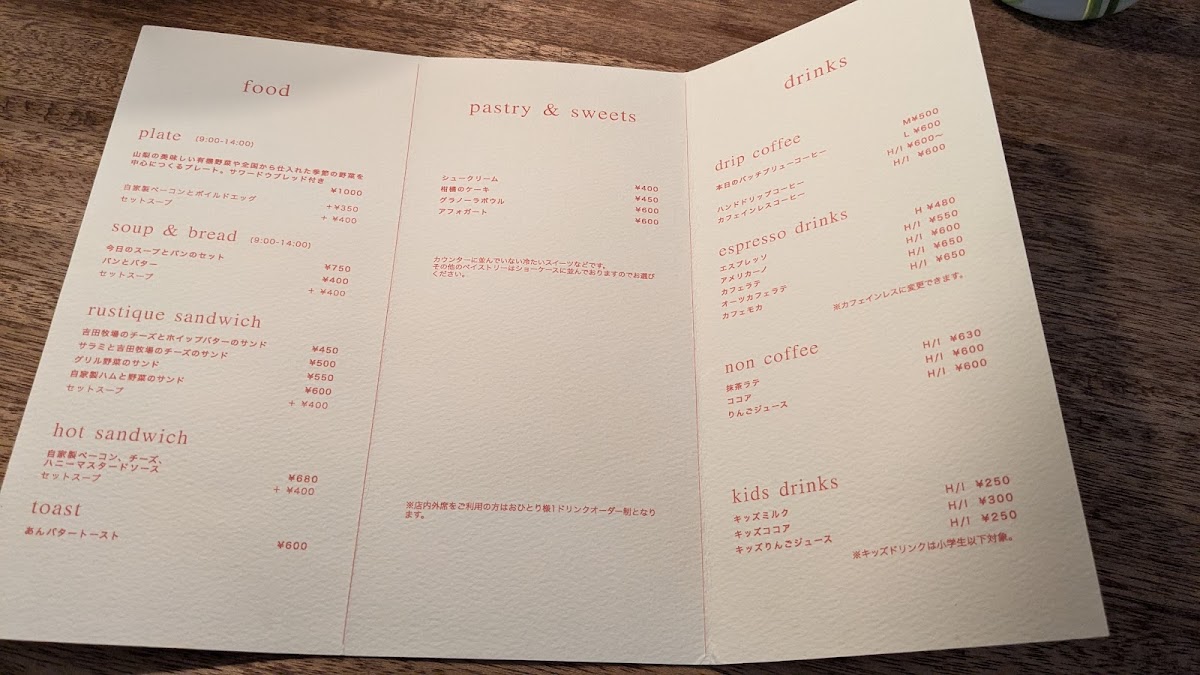 food
plate (9:00-14:00)
山梨の美味しい有機野菜や全国から仕入れた季節の野菜を
中心につくるプレート。サワードウブレッド付き
¥1000
自家製ベーコンとボイルドエッグ +¥350
セットスープ + ¥400
soup & bread (9:00-14:00)
今日のスープとパンのセット ¥750
パンとバター ¥400
セットスープ + ¥400
rustique sandwich
吉田牧場のチーズとホイップバターのサンド ¥450
サラミと吉田牧場のチーズのサンド ¥500
グリル野菜のサンド ¥550
自家製ハムと野菜のサンド ¥600
セットスープ + ¥400
hot sandwich
自家製ベーコン、チーズ、
ハニーマスタードソース ¥680
セットスープ + ¥400
toast
あんバタートースト ¥600
pastry & sweets
シュークリーム ¥400
柑橘のケーキ ¥450
グラノーラボウル ¥600
アフォガート ¥600
カウンターに並んでいない冷たいスイーツなどです。
その他のペイストリーはショーケースに並んでおりますのでお選び
ください。
※店内外席をご利用の方はおひとり様1ドリンクオーダー制となり
ます。
drinks
drip coffee
本日のバッチブリューコーヒー M¥500
L ¥600
ハンドドリップコーヒー H/I ¥600〜
カフェインレスコーヒー H/I ¥600
espresso drinks
エスプレッソ H ¥480
アメリカーノ H/I ¥550
カフェラテ H/I ¥600
オーツカフェラテ H/I ¥650
カフェモカ H/I ¥650
※カフェインレスに変更できます。
non coffee
抹茶ラテ H/I ¥630
ココア H/I ¥600
りんごジュース H/I ¥600
kids drinks
キッズミルク H/I ¥250
キッズココア H/I ¥300
キッズりんごジュース H/I ¥250
※キッズドリンクは小学生以下対象。